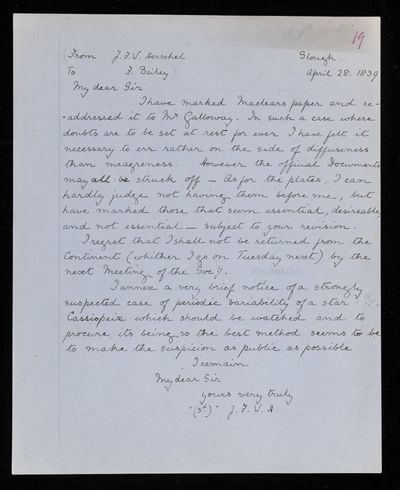 19
(From J.F.W. Herschel Slough
To F. Bailey) April 28. 1839
My dear Sir
I have marked Maclears paper and re-
-addressed it to Mr Galloway. In such a case where
doubts are to be set at rest for ever I have felt it
necessary to err rather on the side of diffuseness
than meagreness. However the official Documents
may all be struck off — As for the plates, I can
hardly judge not having them before me, but
have marked those that seem essential, desireable
and not essential — subject to your revision.
I regret that I shall not be returned from the
Continent (whither I go on Tuesday next) by the
next Meeting of the Socy.
I annex a very brief notice of a strongly
suspected case of periodic variability of a star
Cassiopeiæ which should be watched and to
procure its being so the best method seems to be
to make the suspicion as public as possible.
I remain
My dear Sir
yours very truly
"(sd)" J. F. W. H.